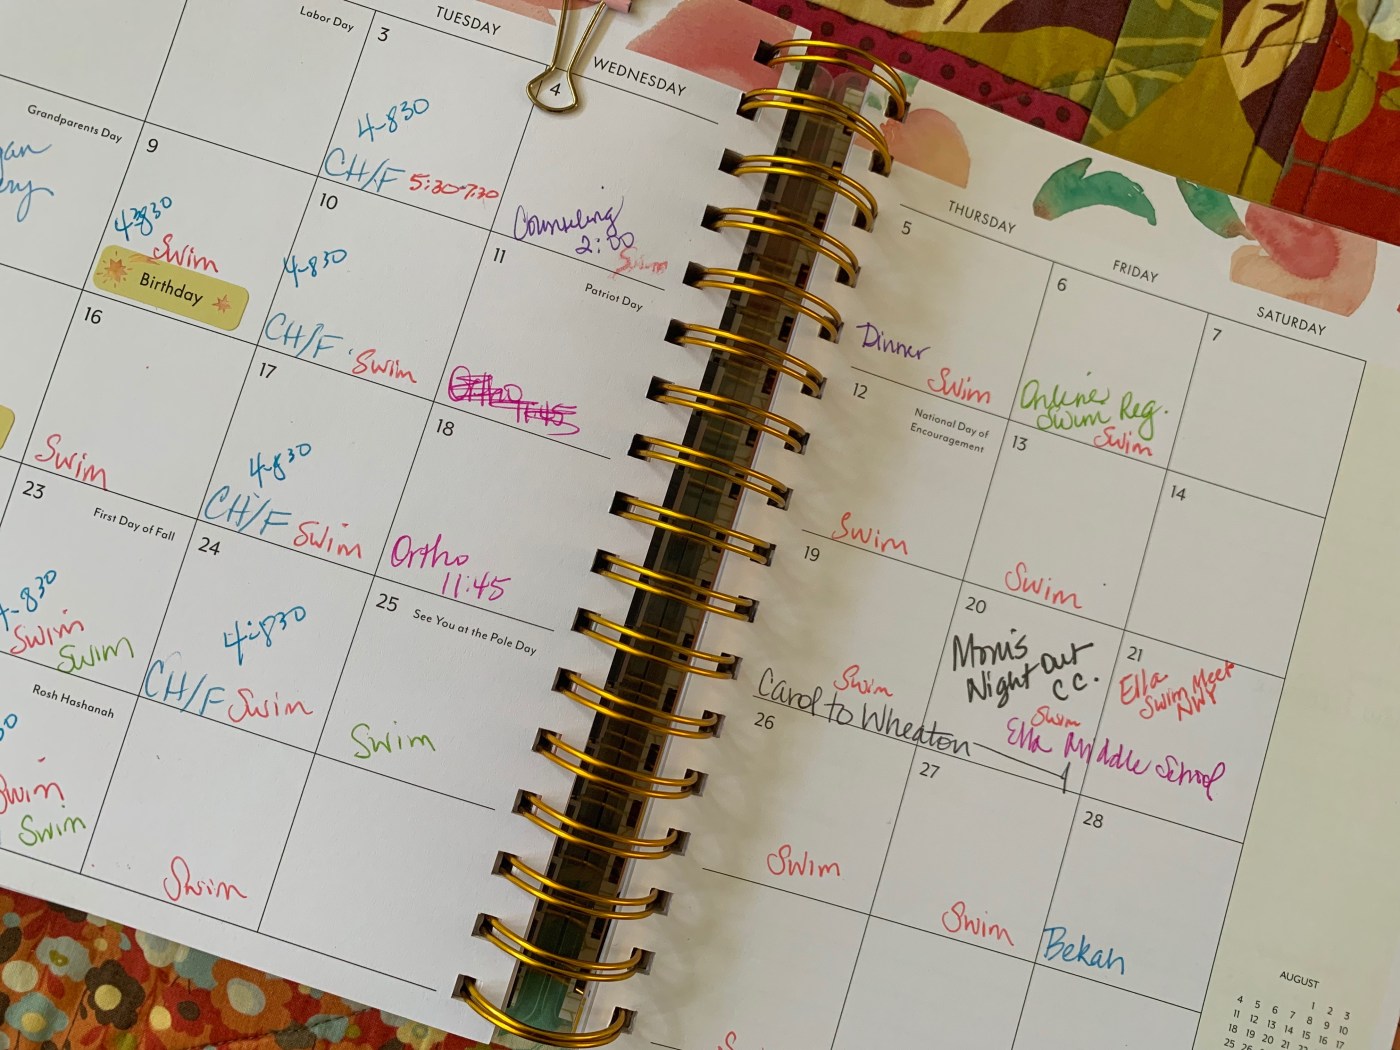 TUESDAY
WEDNESDAY
Labor Day
3
4-8³⁰
CH/F 5:30-7:30
4
Counseling
2:00
Swim
Grandparents Day
9
Swim
Birthday
10
4-8³⁰
CH/F Swim
11
Patriot Day
Ortho
11:45
16
Swim
17
4-8³⁰
CH/F Swim
18
Ortho
11:45
23
First Day of Fall
4-8³⁰
Swim
Swim
24
4-8³⁰
CH/F Swim
25
See You at the Pole Day
Swim
Rosh Hashanah
Swim
Swim
Swim
THURSDAY
FRIDAY
SATURDAY
5
Dinner
Swim
6
Online Reg.
Swim
Swim
7
12
National Day of
Encouragement
Swim
13
Swim
14
19
Swim
Carol to Wheaton
20
Mom's
Night Out
C.C.
Swim
Ella Middle School
21
Ella
Swim Meet
26
Swim
27
Swim
28
Bekah
AUGUST
1 2 3
4 5 6 7 8 9 10
11 12 13 14 15 16 17
18 19 20 21 22
25 26